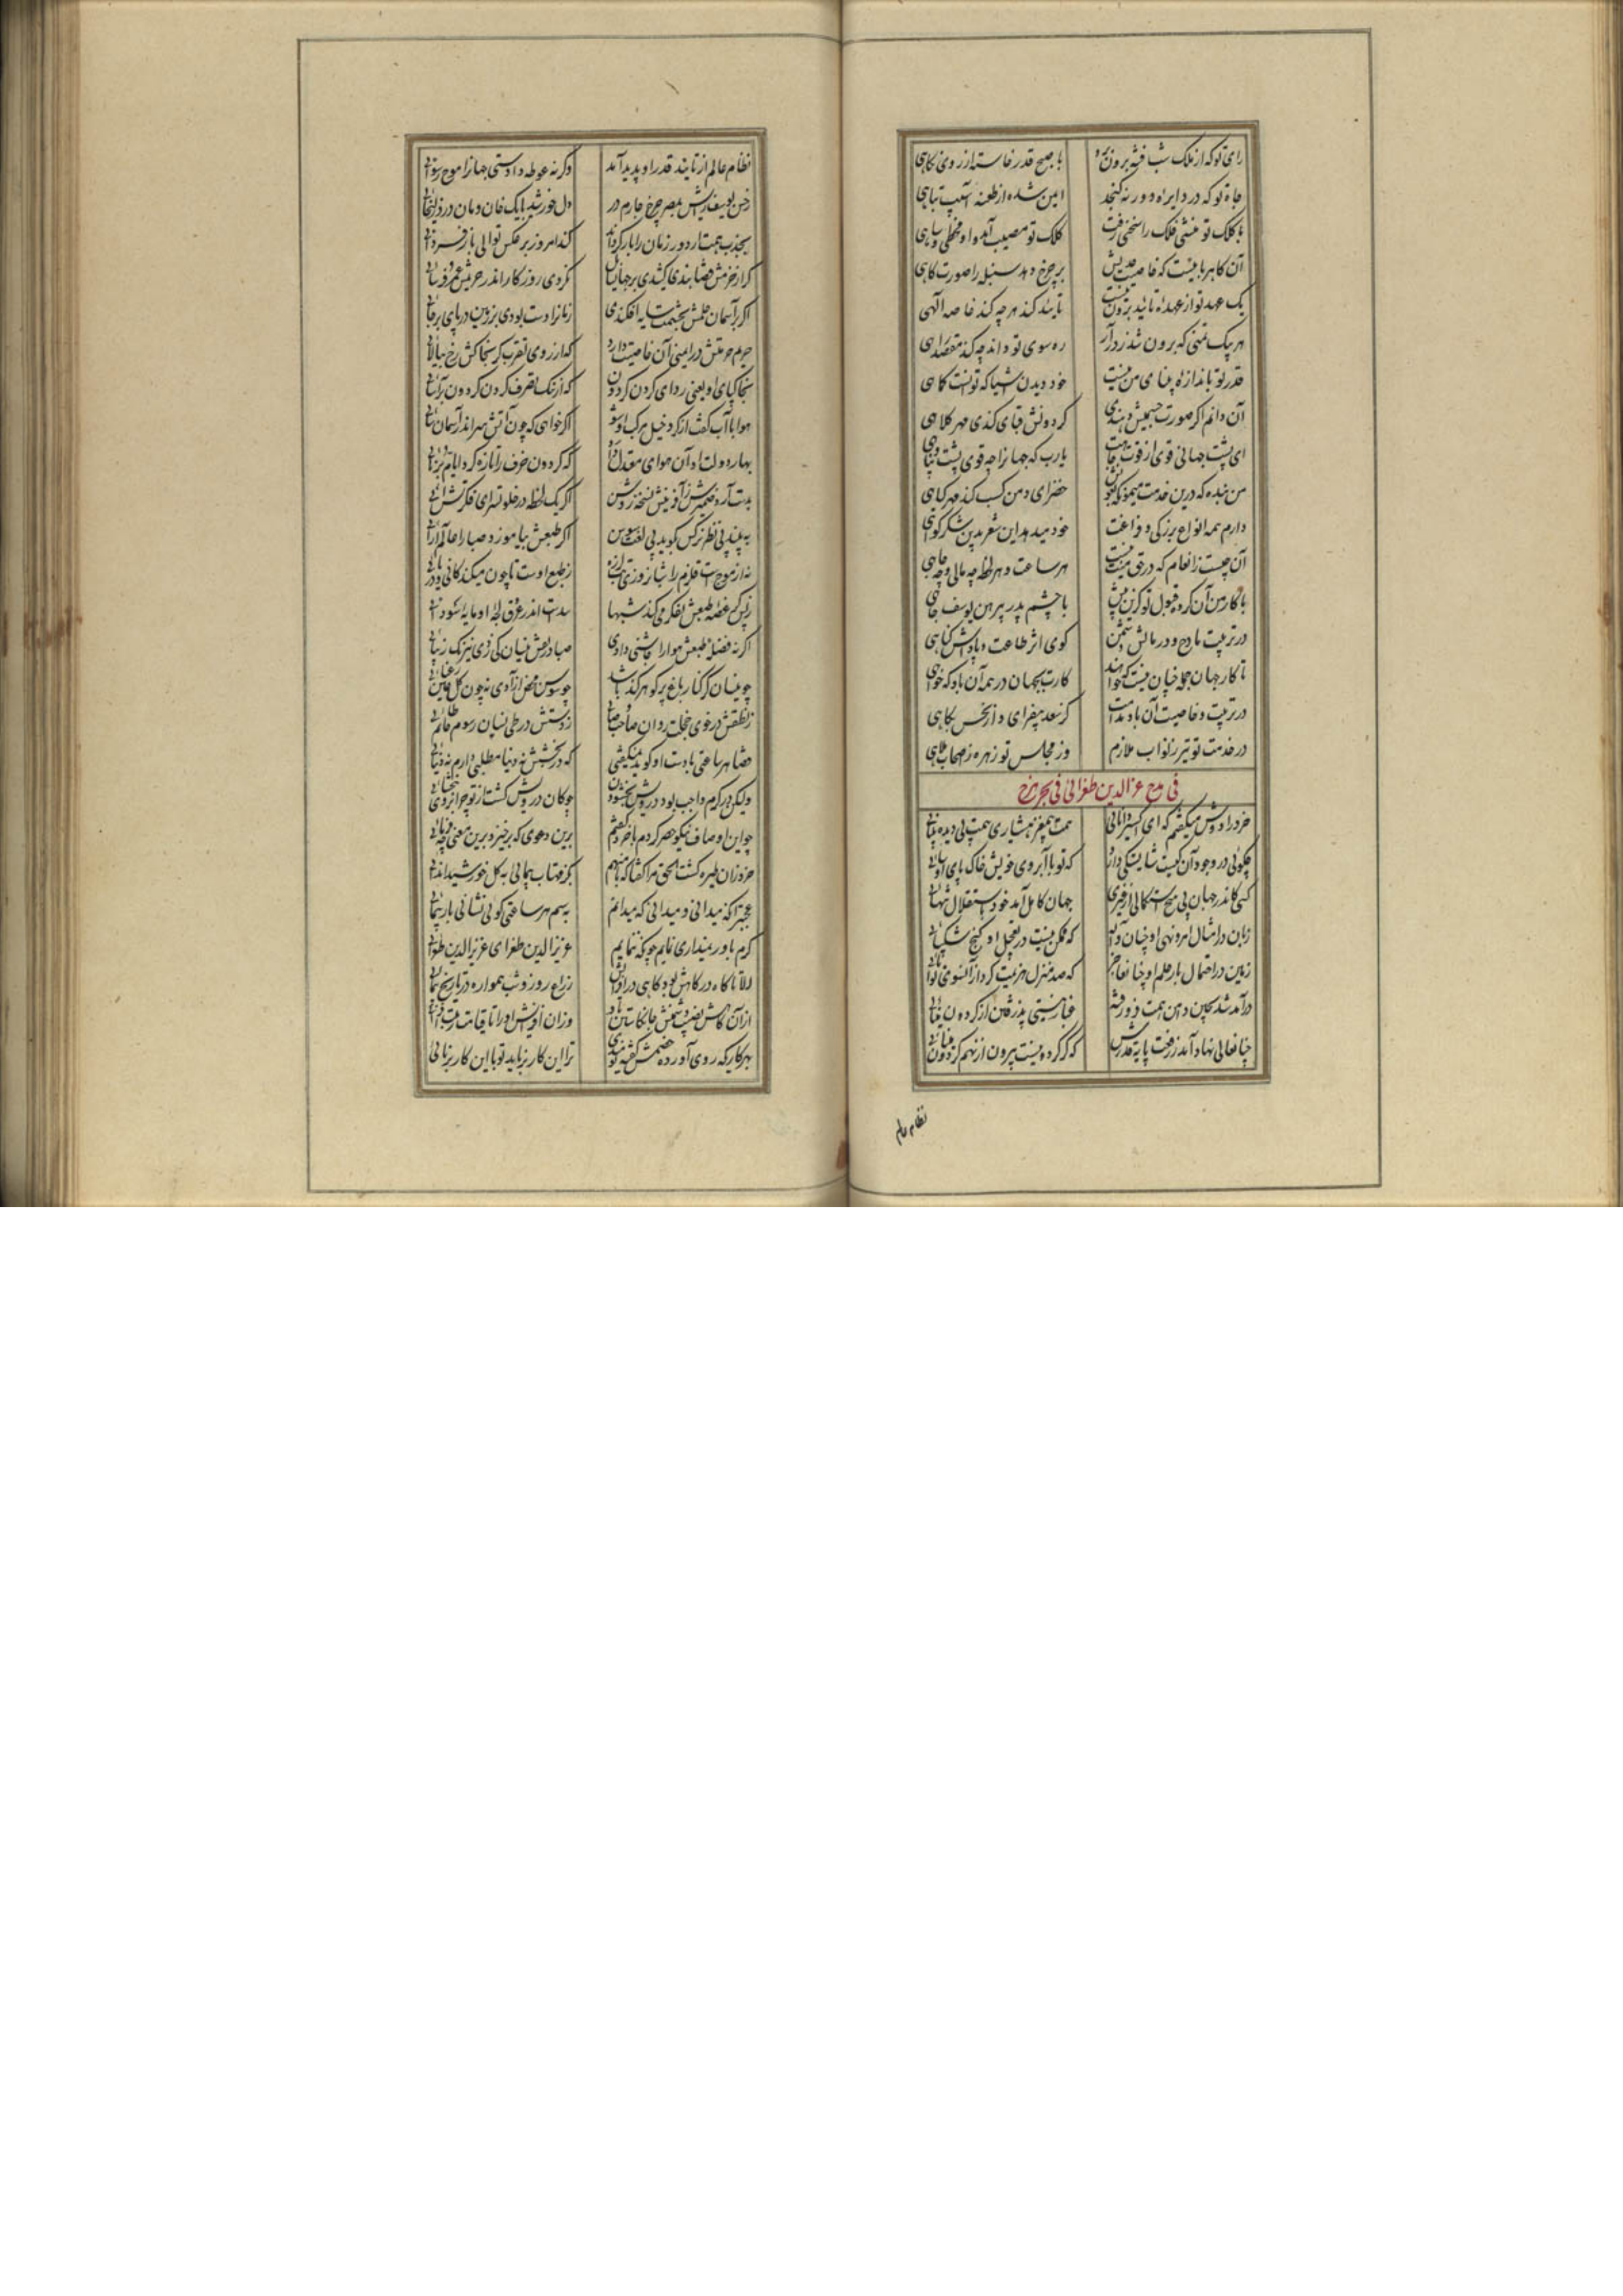 رای تو که از ملک شب فتنه برون برد با صبح قدر خاسته از روی پکاهی
جاه تو که در دایره دور نه گنجد ایمن شده از طعنه آسیب تباهی
با کلک تو منشی فلک را سخنی رفت کلک تو مصیب آمد و او مخطی و ساهی
آن کاه رباییست که خاصیت جذبش بر چرخ دهد سنبله را صورت کاهی
یک عهد تو از عهده تایید برون نیست تایید کند هر چه کند خاصه الهی
هر پیک تمنی که برون شد ز در آز ره سوی تو داند چه کند مقصد راهی
قدر تو باندازه بینایی من نیست خود دیدن اشیا که توانست کماهی
آن دانم اگر صورت جسمیش دهندی گردونش قبایی کندی مهر کلاهی
ای پشت جهانی قوی از قوت جاهت یارب که جهانرا چه قوی پشت و پناهی
من بنده که درین خدمت میمون خضرای دمن کسب کند مهر گیاهی
دارم همه انواع بزرگی و فراغت خود میدهد این شعر بدین شکر گواهی
آن چیست ز انعام که در حق منت نیست هر ساعت و هر لحظه چه مالی و چه جاهی
با کار من آن کرد قبول تو کزین پیش با چشم پدر پیرهن یوسف چاهی
در تربیت مادح و در مالش دشمن گویی اثر طاعت و پاداش گناهی
تا کار جهان جمله چنان نیست که خواهند کارت بجهان در همه آن باد که خواهی
در تربیت و خاصیت آن باد مدامت کز سعد بیفزای و از نحس بکاهی
در خدمت تو تیر ز نواب ملازم وز مجلس تو زهره ز اصحاب ملاهی
فی مدح عزالدین طغرائی فی بحر هزج
خرد را دوش میگفتم که ای اکسیر دانائی همت بیمغز هشیاری همت بی دیده بینائی
چگوئی در وجود آن کیست شایستگی دارد که تو با آبروی خویش خاک پای او سائی
کسی کاندر جهان بی هیچ استکمالی از غیری جهان کامل آمد خود باستقلال تنهائی
زمان در امتثال امر و نهی او چنان واله که ممکن نیست در تعجیل او گنج شکیبائی
زمین در احتمال بار حلم او چنان عاجز که صد منزل هزیمت کرد از آنسوی توانائی
درآمد شد بچین دامن همت فرو رفته غبار نیستی پذرفتن از گردون مینائی
چنان عالی نهاد آمد ز رفعت پایه قدرش که گر گردد نیست بیرون از نهم گردون مینائی
نظام عالم
نظام عالم از تایید قدر او پدید آمد وگرنه غوطه دادستی جهانرا موج رسوائی
ز حسن یوسف رایش بمصر چرخ چارم در دل خورشید با یک خان و مان درد زلیخائی
بجذب همت ار دور زمان را باز گرداند کند امروز بر عکس توالی باز فردائی
گر از حزمش قضا بندی کشیدی بر جهان نکردی روزگار اندر حریمش عمر فرسائی
اگر بر آسمان حلمش بحشمت سایه افکندی زمانرا دست بودی بر زمین در پای برجائی
حریم حرمتش در ایمنی آن خاصیت دارد که از روی تقرب گر بنجا کش رخ بیالائی
بخاک پای او یعنی ردای گردن گردون که از ننگ تصرف کردن گردون برآسائی
هوا با آب گفت از گرد خیل مرکب او شو اگر خواهی که چون آتش سر اندر آسمان سائی
بهار دولت او آن هوای معتدل دارد که گردون خرف را تازه کرد ایام برنائی
بدست آرد ضمیرش آفرینش نسخه روشن اگر یک لحظه در خلوت سرای فکرتش آئی
ببیند بی نظر نرگس گوید بی لغت سوسن اگر طبعش بیاموزد صبا را عالم آرائی
نه از موج است قلزم را شبانروزی ز طبع اوست تا چون میکند کانی و دریائی
زبس کز غصه طبعش تفکر میکند شبها بدست اندر عرق لجه او مایه سودائی
اگر نه فضله طبعش هوا را چاشنی دادی صبا در نفش نیسان کی زدی نیرنگ زیبائی
چو نیسان گر کنار باغ پر گوهر کند باشد چو سوسن محض آزادی نه چون گل عین رعنائی
ز نطقش در خوی خجلت روان صاحب صابی ز دستش در طی نسیان رسوم حاتم طائی
قضا هر ساعتی با دست او گوید همیگفتی که در بخشش نه دنیا مطلبی دارم نه دنیائی
ولیکن بر کرم واجب بود درویش بخشودن چو کان درویش گشت از تو چرا بر وی نبخشائی
چو این اوصاف نیکو حصر کردم با خرد گفتم برین دعوی که برخیزد برین معنی چه فرمائی
خرد زان طیره گشت الحق مرا گفتا که با منهم بگز مهتاب پیمائی به گل خورشید اندائی
عجبتر آنکه میدانی و میدانی که میدانم بپرسم هر ساعتی گوئی نشانی باز بنمائی
گرم باور نمیداری نمایم چونکه بنمایم عزیزالدین طغرای عزیزالدین طغرائی
الا تا کاه در کاهش بود گاهی در افزایش ز راه روز و شب همواره در تاریخ پیمائی
از آن کاهش نصیب دشمنش جانکاستن بادا وزان افزایش او را تا قیامت مرتبت افزائی
بهر کاری که روی آورده خصمش گفته نومیدی ترا این کار برناید تو با این کار برنائی